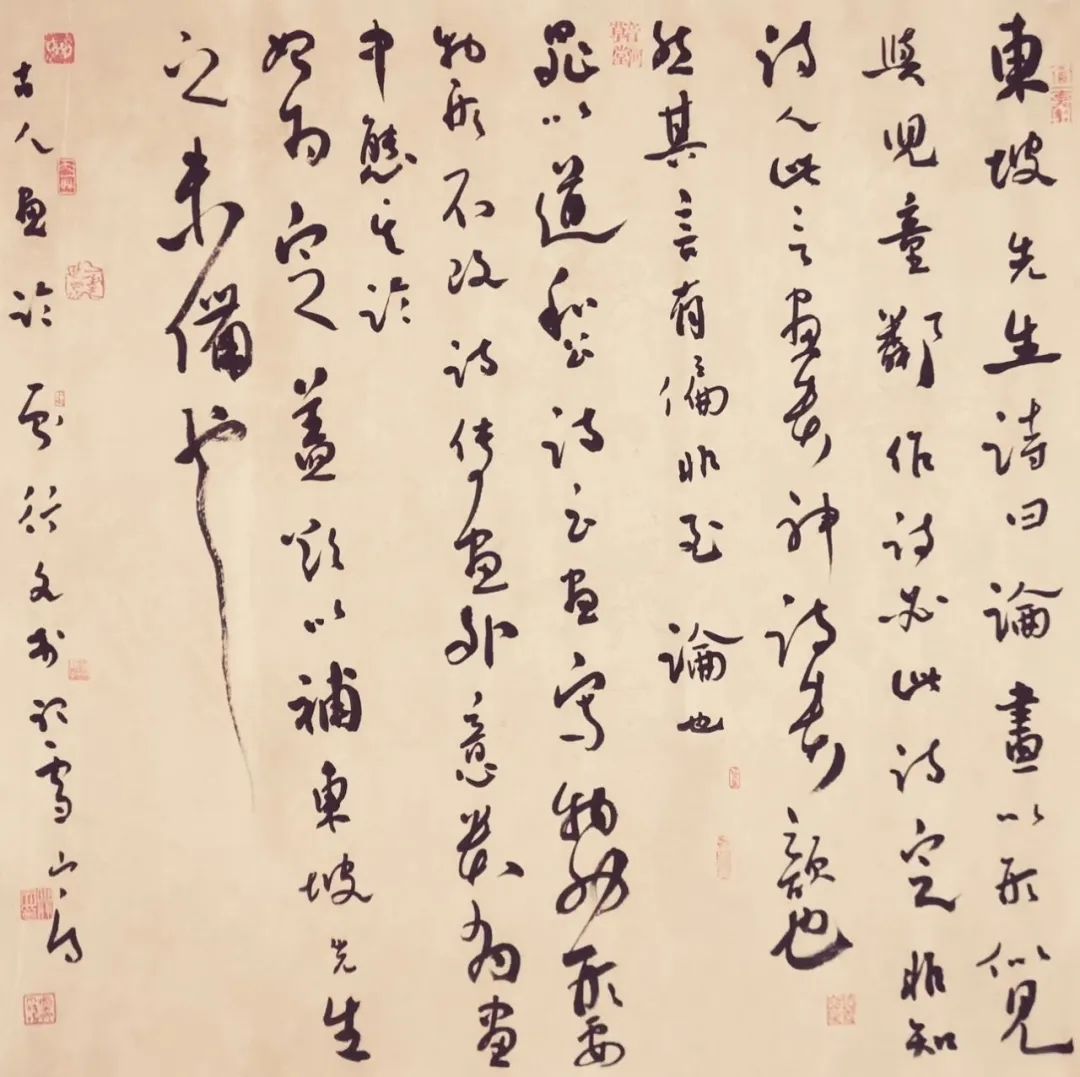 東坡先生詩曰論畫以形似見
與兒童鄰作詩必此詩定非知
詩人此言畫貴神詩貴韻也
然其言有偏非至論也
晁以道和公詩云畫寫物外形要
物形不改詩傳畫外意貴有畫
中態其論
始為定蓋欲以補東坡先生
之未備也
古人畫論 行文書於雪山